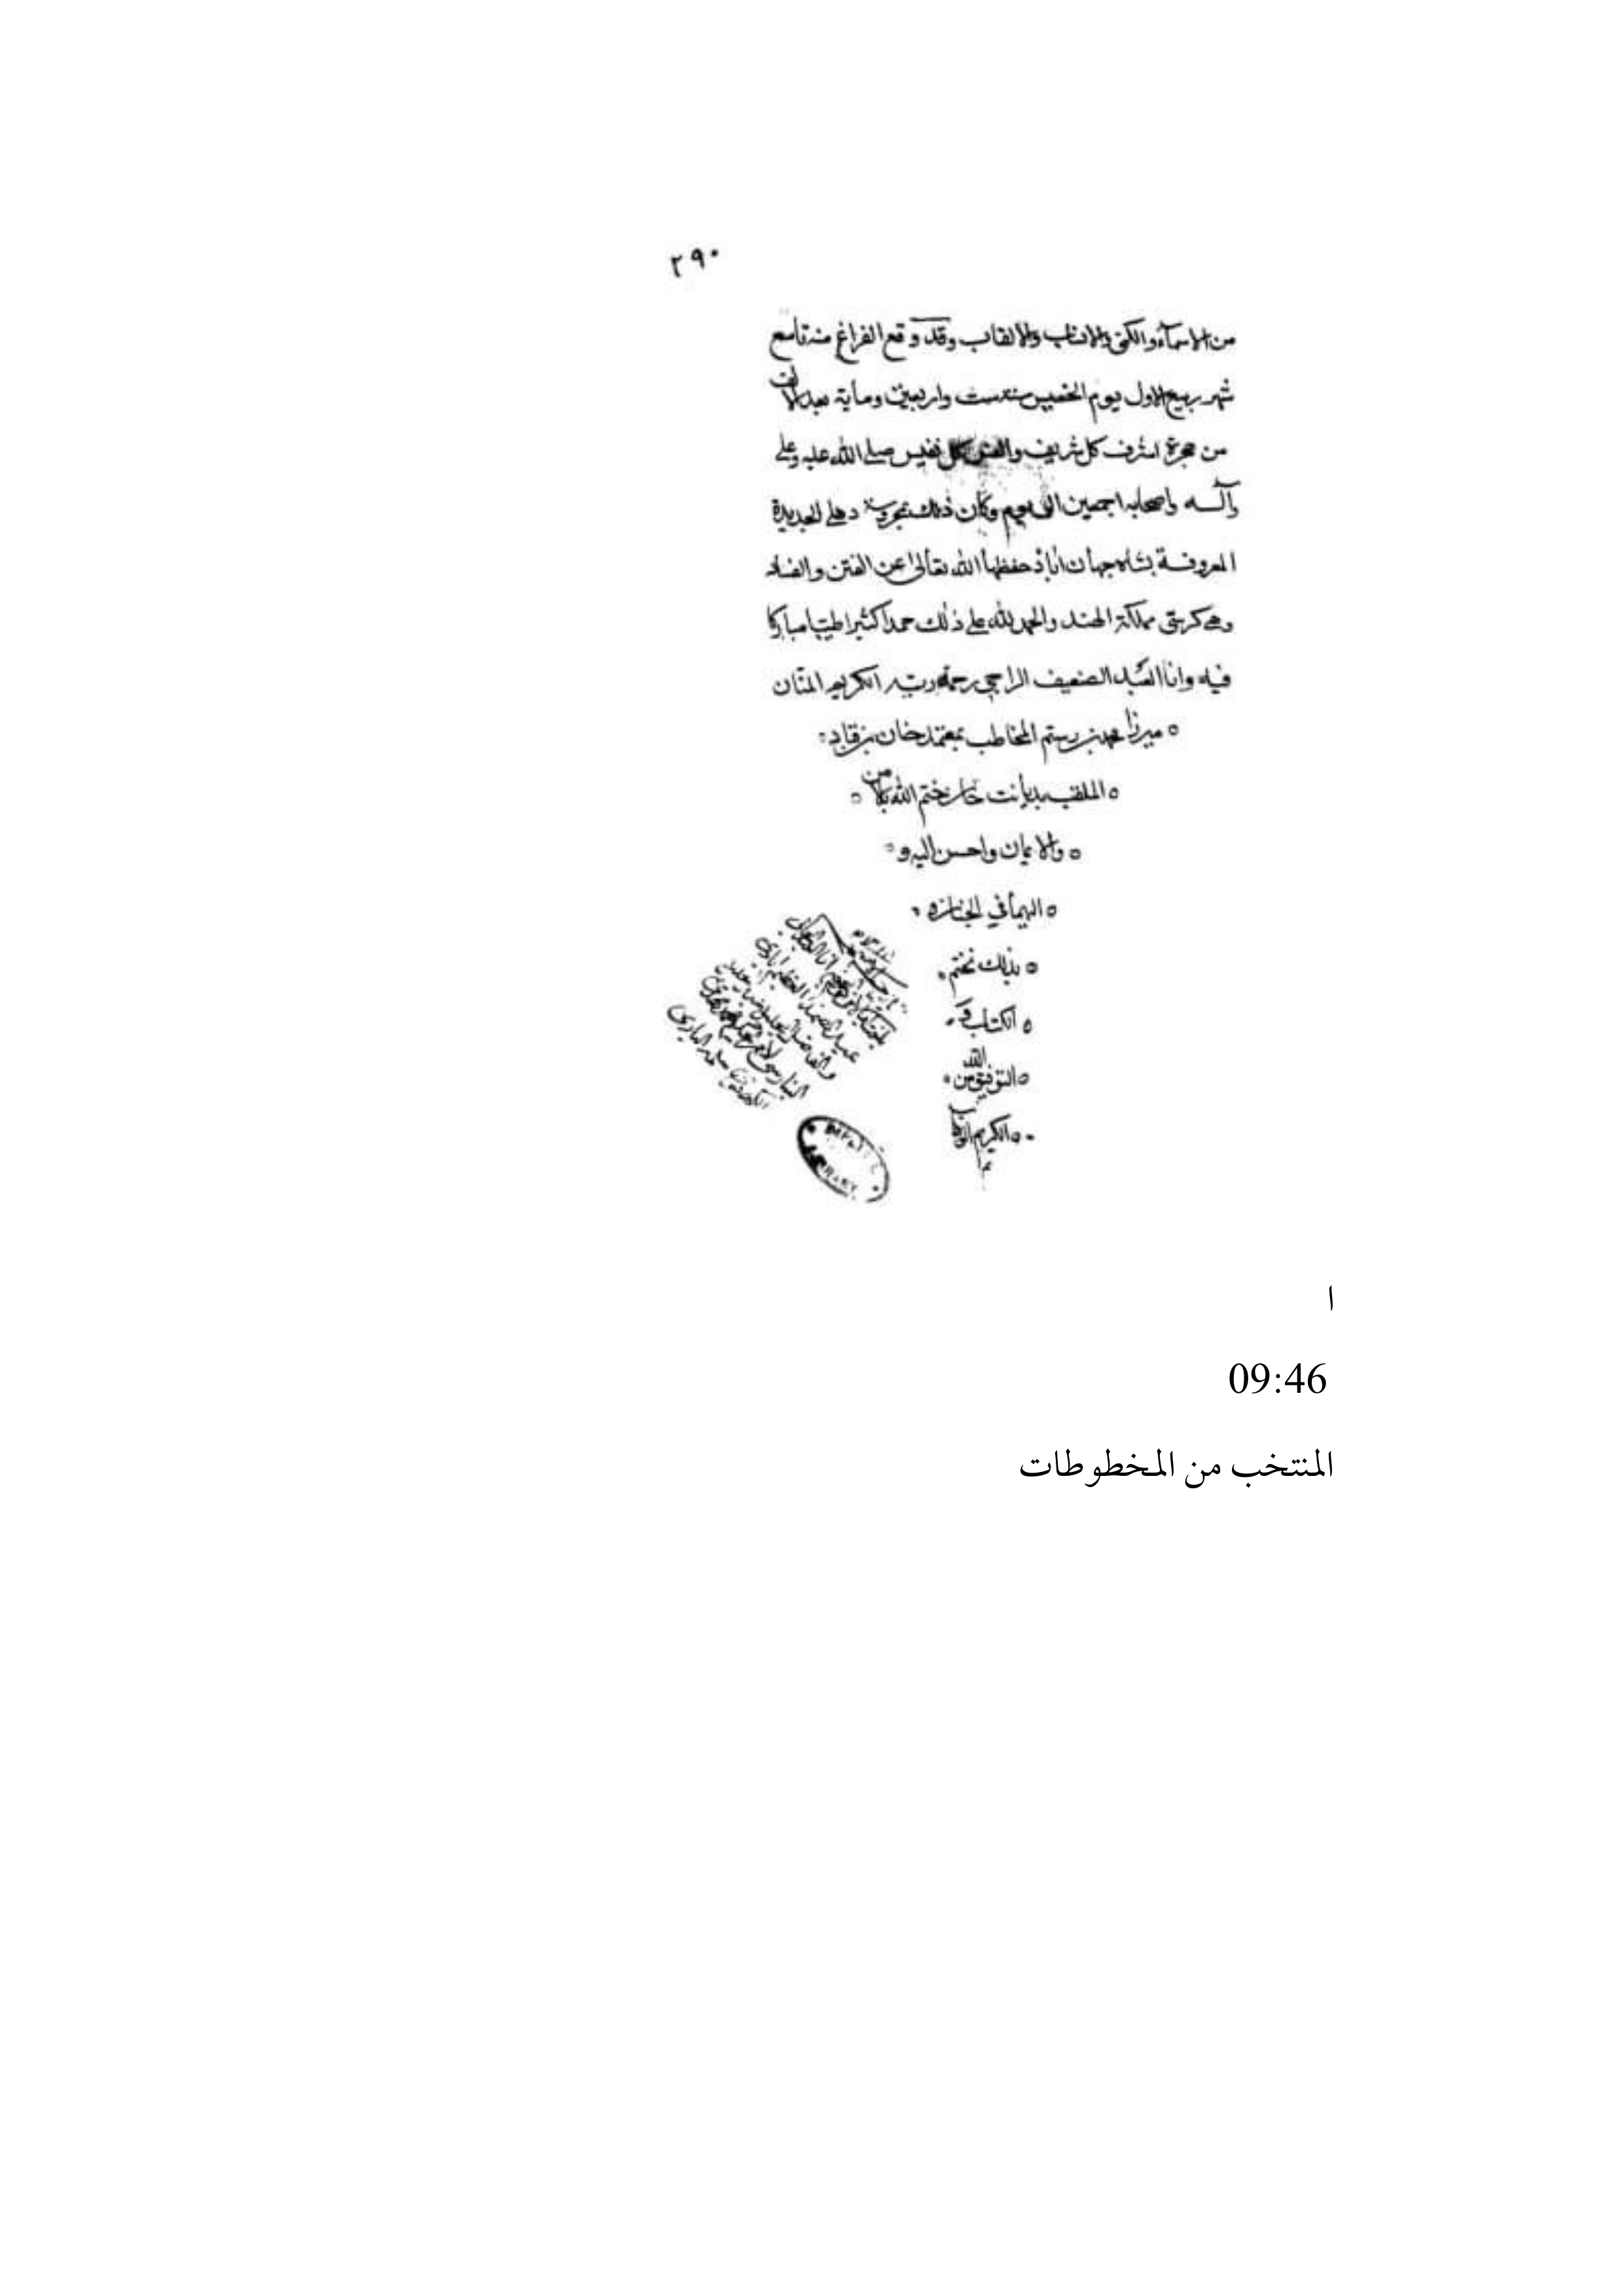 ٢٩٠
من الاسمآء والكنى والانساب والالقاب وقد وقع الفراغ منه تاسع
شهر ربيع الاول يوم الخميس سنة ست واربعين ومأية بعد الالف
من هجرة اشرف كل شريف وانفس كل نفيس صلى الله عليه وعلى
وآله واصحابه اجمعين الى يوم وكان ذلك بمحروسة دهلى الجديدة
المعروفة بشاه جهان اباذ حفظها الله تعالى عن الفتن والفساد
وهى كرسى مملكة الهند والحمد لله على ذلك حمدا كثيرا طيبا مباركا
فيه وانا العبد الضعيف الراجى رحمة ربه الكريم المنّان
ميرزا محمد بن رستم المخاطب بمعتمد خان بن قباد
الملقب بديانت خان ختم الله بالامن
والايمان واحسن اليه و
اليهما فى الجنازه
بذلك نختم
الكتاب و
التوفيق من الله
الكريم الوهاب
تم
ا
09:46
المنتخب من المخطوطات